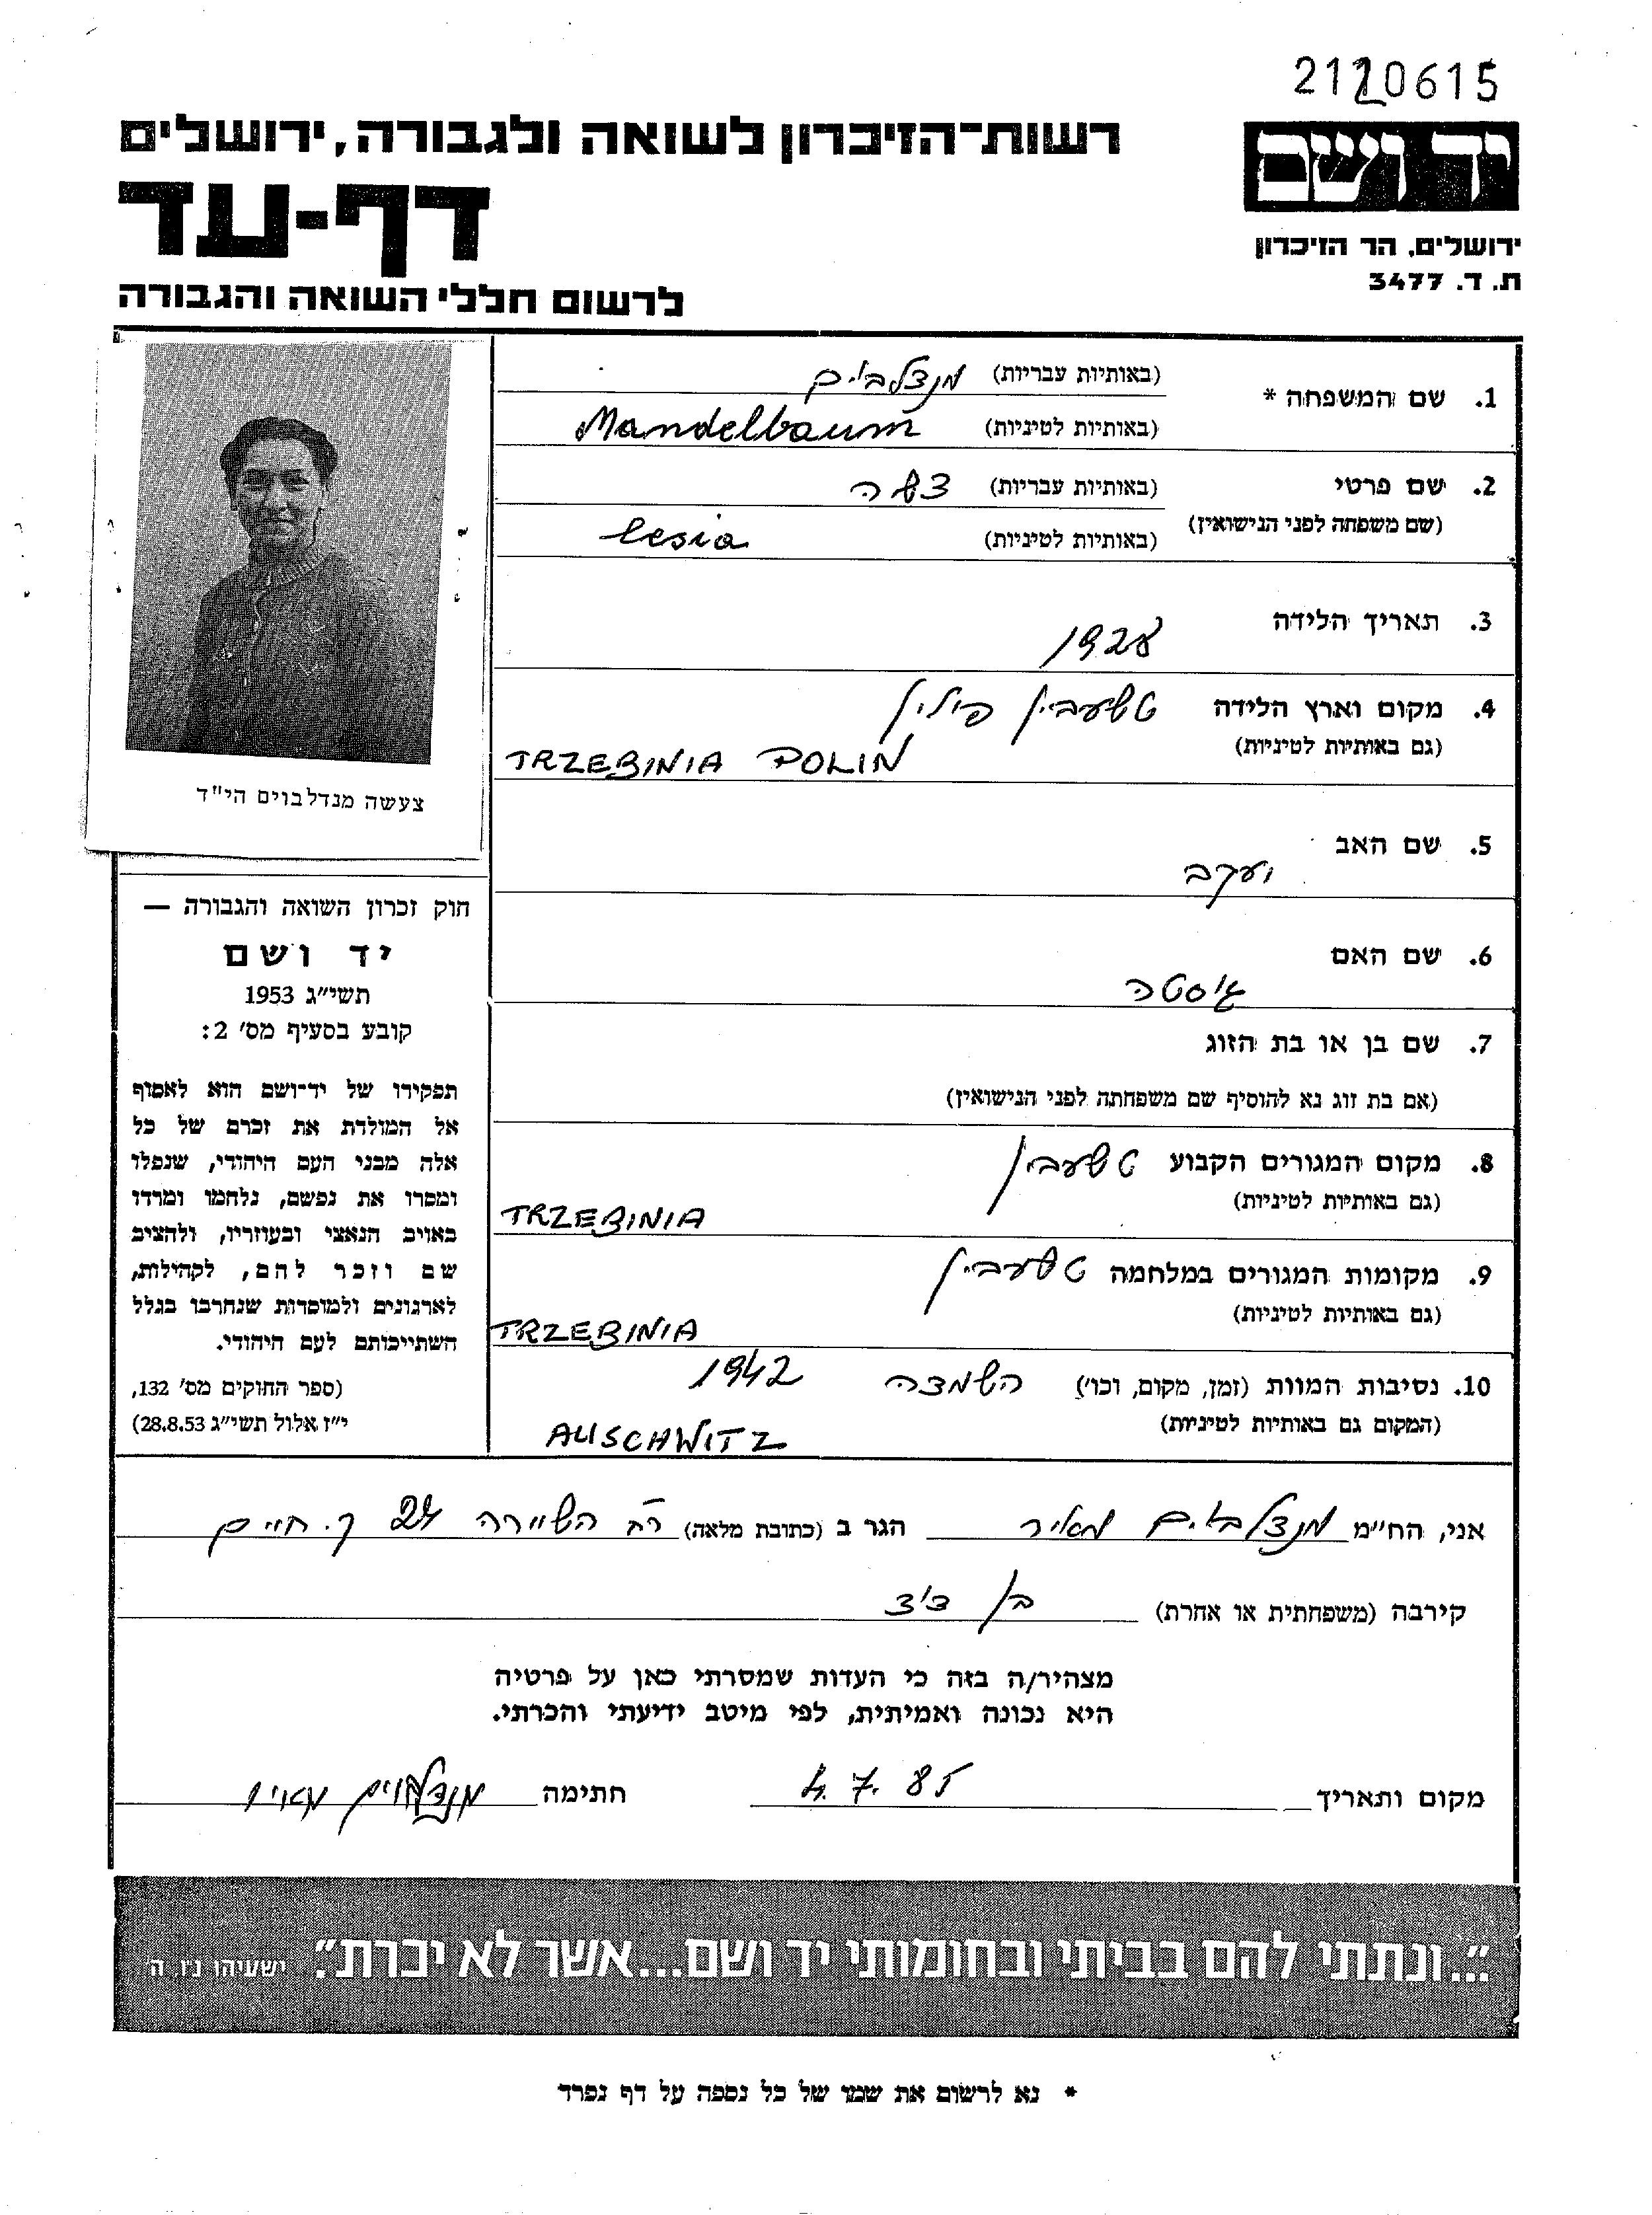 2120615
יד ושם
רשות־הזיכרון לשואה ולגבורה, ירושלים
דף-עד
ירושלים, הר הזיכרון
ת. ד. 3477
לרשום חללי השואה והגבורה
1. שם המשפחה * (באותיות עבריות) מנדלבוים
(באותיות לטיניות) Mandelbaum
2. שם פרטי (באותיות עבריות)
(שם משפחה לפני הנישואין) (באותיות לטיניות) Cesia
3. תאריך הלידה 1928
4. מקום וארץ הלידה טשעבין פולין
(גם באותיות לטיניות) TRZEBINIA POLIN
5. שם האב יעקב
6. שם האם גוסטה
7. שם בן או בת הזוג
(אם בת זוג נא להוסיף שם משפחתה לפני הנישואין)
8. מקום המגורים הקבוע טשעבין
(גם באותיות לטיניות) TRZEBINIA
9. מקומות המגורים במלחמה טשעבין
(גם באותיות לטיניות) TRZEBINIA
10. נסיבות המוות (זמן, מקום, וכו׳) השמדה 1942
(המקום גם באותיות לטיניות) AUSCHWITZ
צעשה מנדלבוים הי"ד
חוק זכרון השואה והגבורה —
יד ושם
תשי״ג 1953
קובע בסעיף מס׳ 2:
תפקידו של יד־ושם הוא לאסוף
אל המולדת את זכרם של כל
אלה מבני העם היהודי, שנפלו
ומסרו את נפשם, נלחמו ומרדו
באויב הנאצי ובעוזריו, ולהציב
שם וזכר להם, לקהילות,
לארגונים ולמוסדות שנחרבו בגלל
השתייכותם לעם היהודי.
(ספר החוקים מס׳ 132,
י״ז אלול תשי״ג 28.8.53)
אני, הח״מ מנדלבוים מאיר הגר ב (כתובת מלאה) רח השיירה 24 ק. חיים
קירבה (משפחתית או אחרת) בן דוד
מצהיר/ה בזה כי העדות שמסרתי כאן על פרטיה
היא נכונה ואמיתית, לפי מיטב ידיעתי והכרתי.
מקום ותאריך 4.7.85 חתימה מנדלבוים מאיר
״...ונתתי להם בביתי ובחומותי יד ושם...אשר לא יכרת״. ישעיהו נ״ו ה׳
* נא לרשום את שמו של כל נספה על דף נפרד